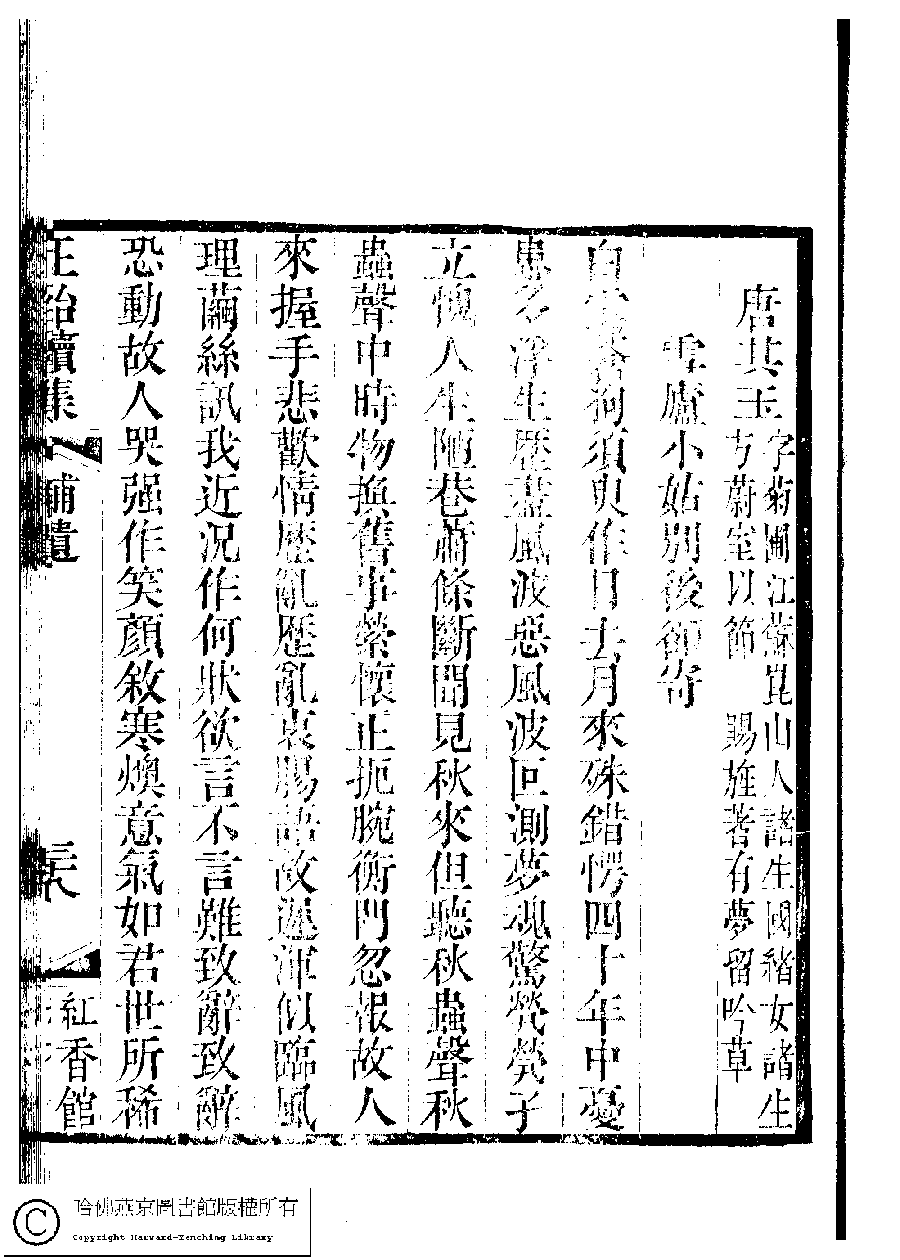 唐其玉
字菊圃江蘇崑山人諸生國緒女諸生
方蔚室以節 賜旌著有夢留吟草
雪廬小姑別後卻寄
白雲蒼狗須臾作日去月來殊錯愕四十年中憂
患多浮生歷盡風波惡風波叵測夢魂驚煢煢孑
立愧人生陋巷蕭條斷聞見秋來但聽秋蟲聲秋
蟲聲中時物換舊事縈懷正扼腕衡門忽報故人
來握手悲歡情歷亂歷亂衷腸語故遲渾似臨風
理繭絲訊我近況作何狀欲言不言難致辭致辭
恐動故人哭强作笑顏敘寒燠意氣如君世所稀
正始續集 補遺 三十八 紅香館
哈佛燕京圖書館版權所有
Copyright Harvard-Yenching Library